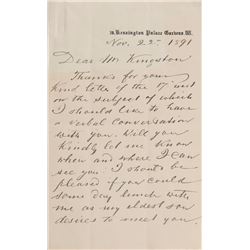 18, Kensington Palace Gardens, W.
Nov. 22nd 1891
Dear Mr Kingston
Thanks for your
kind letter of the 17 inst
on the subject of which
I should like to have
a verbal conversation
with you. Will you
kindly let me know
when and where I can
see you I should be
pleased if you could
some day lunch with
me as my eldest son
desires to meet you